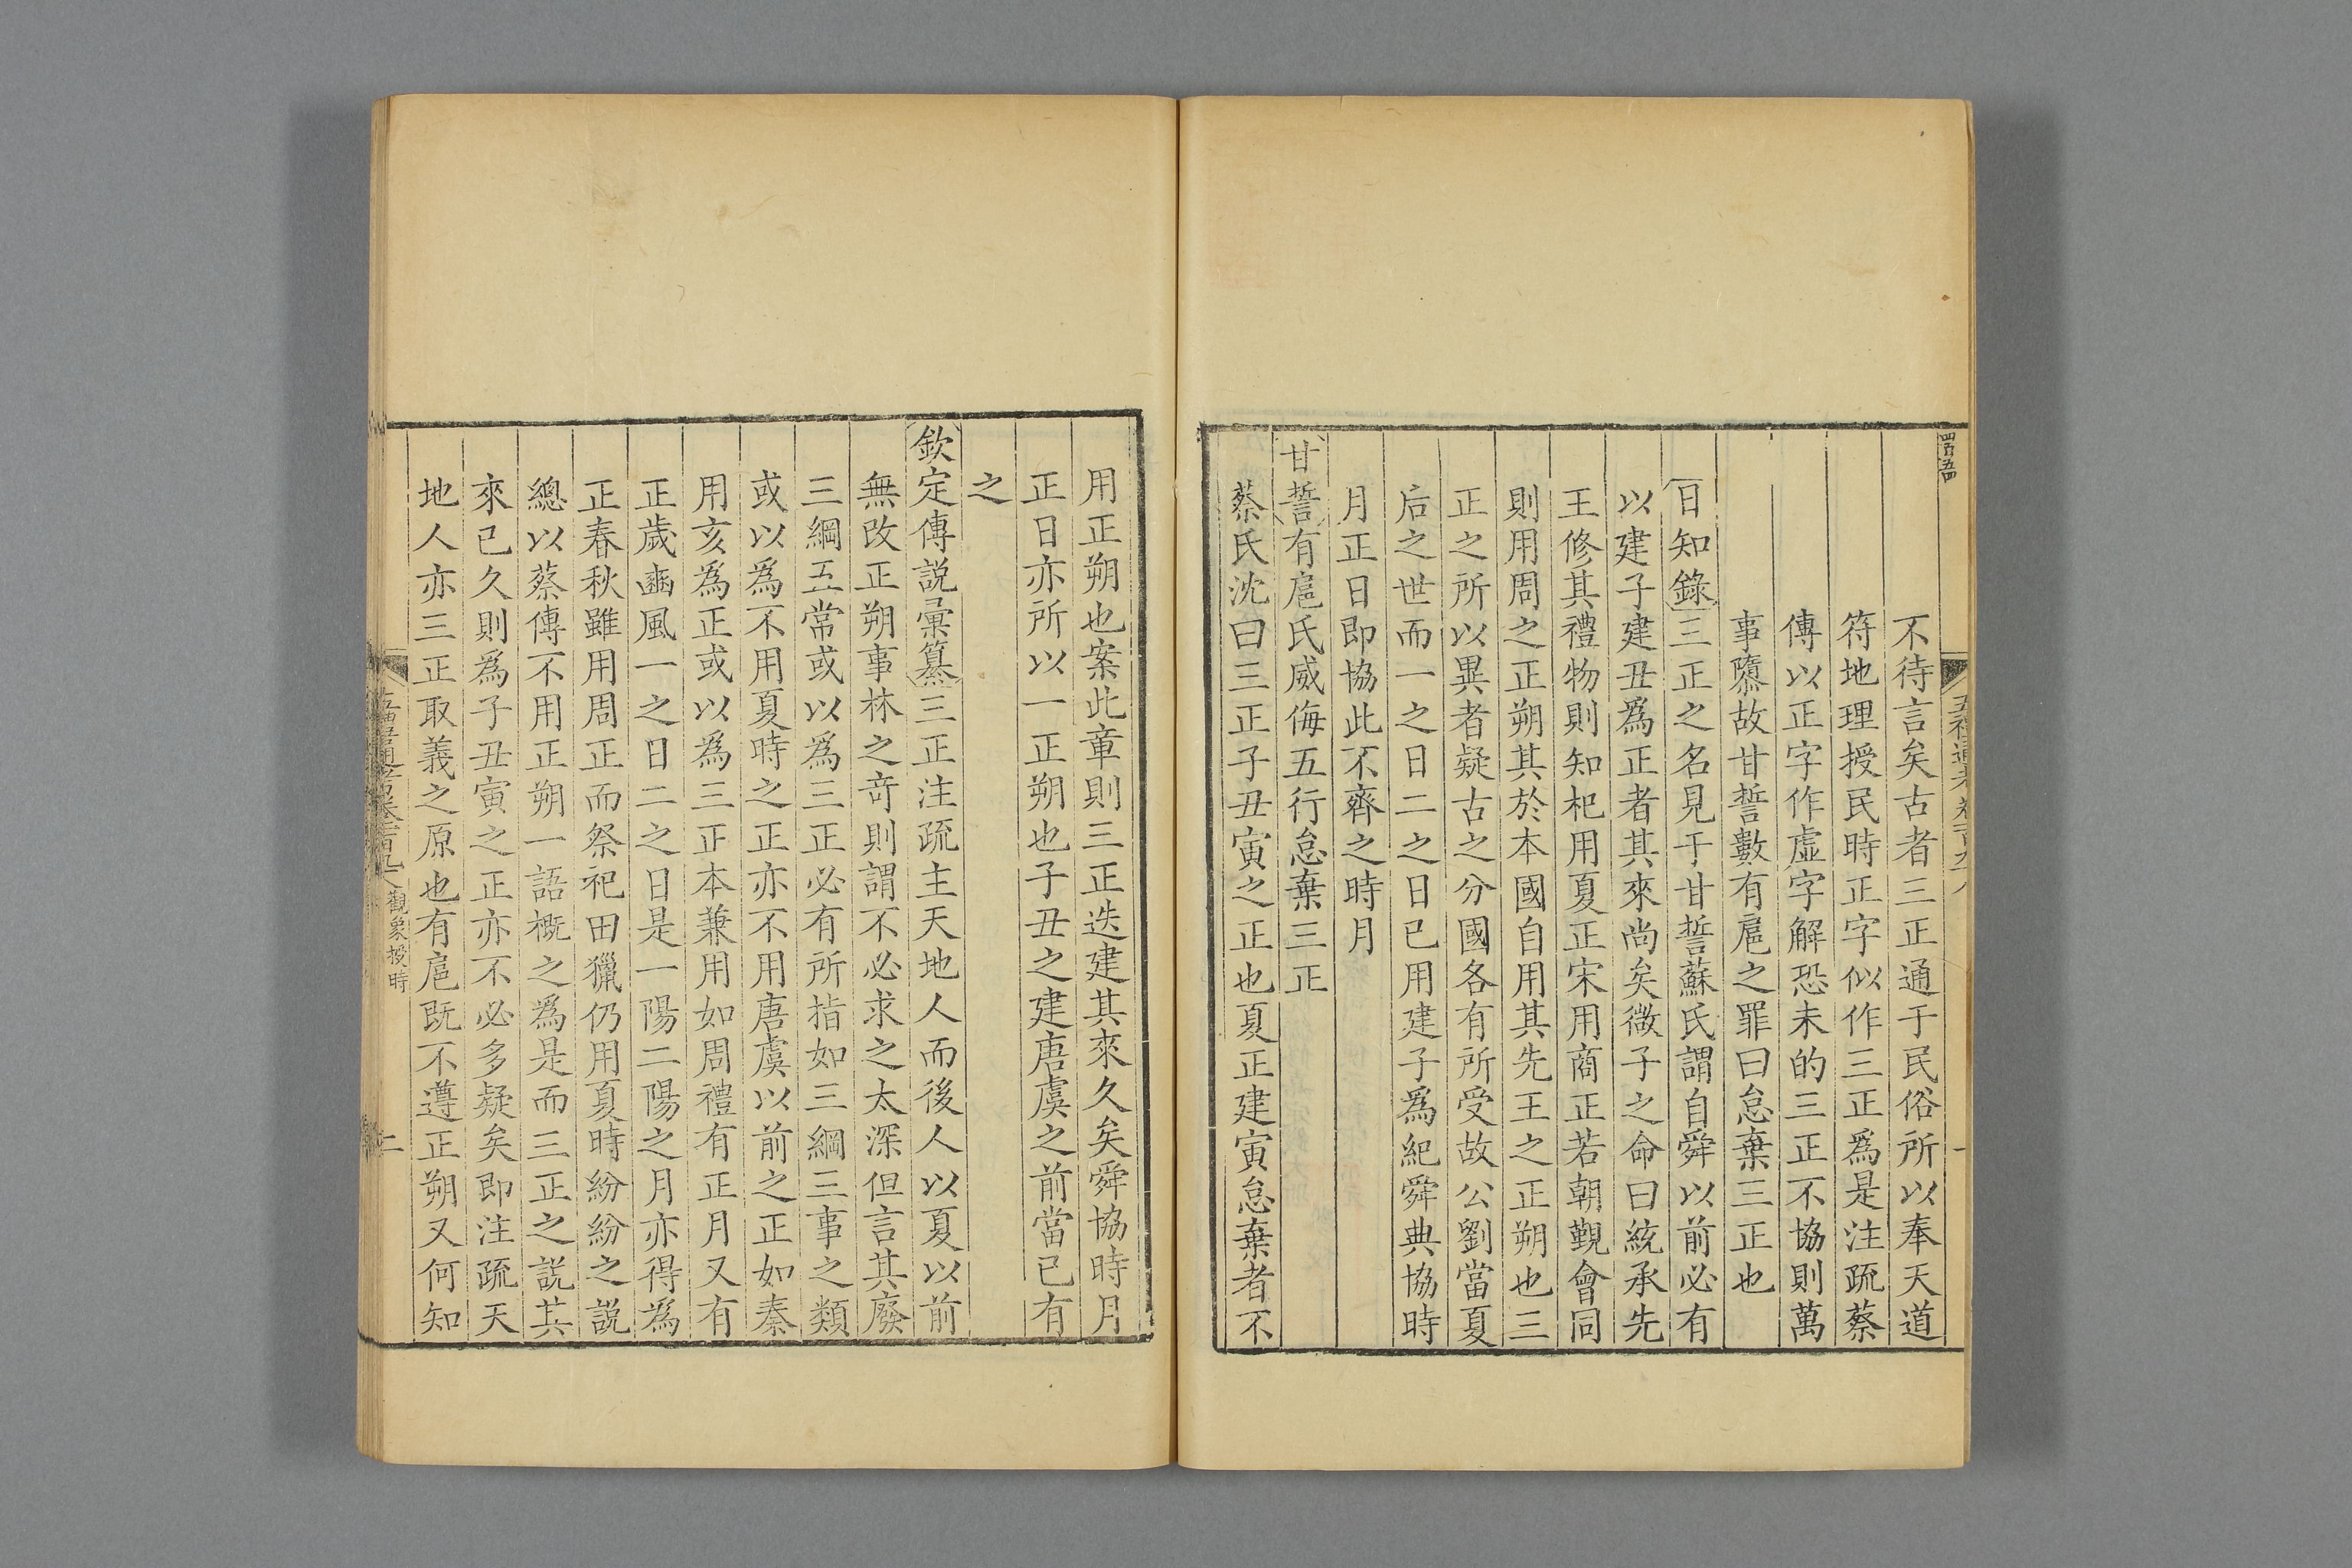 不待言矣古者三正通于民俗所以奉天道
符地理授民時正字似作三正爲是注疏蔡
傳以正字作虛字解恐未的三正不協則萬
事隳故甘誓數有扈之罪曰怠棄三正也
日知錄三正之名見于甘誓蘇氏謂自舜以前必有
以建子建丑爲正者其來尚矣微子之命曰統承先
王修其禮物則知杞用夏正宋用商正若朝覲會同
則用周之正朔其於本國自用其先王之正朔也三
正之所以異者疑古之分國各有所受故公劉當夏
后之世而一之日二之日已用建子爲紀舜典協時
月正日即協此不齊之時月
甘誓有扈氏威侮五行怠棄三正
蔡氏沈曰三正子丑寅之正也夏正建寅怠棄者不
用正朔也案此章則三正迭建其來久矣舜協時月
正日亦所以一正朔也子丑之建唐虞之前當已有
之
欽定傳説彙纂三正注疏主天地人而後人以夏以前
無改正朔事林之奇則謂不必求之太深但言其廢
三綱五常或以爲三正必有所指如三綱三事之類
或以爲不用夏時之正亦不用唐虞以前之正如秦
用亥爲正或以爲三正本兼用如周禮有正月又有
正歲豳風一之日二之日是一陽二陽之月亦得爲
正春秋雖用周正而祭祀田獵仍用夏時紛紛之説
總以蔡傳不用正朔一語概之爲是而三正之説其
來已久則爲子丑寅之正亦不必多疑矣即注疏天
地人亦三正取義之原也有扈既不遵正朔又何知
觀象授時
二